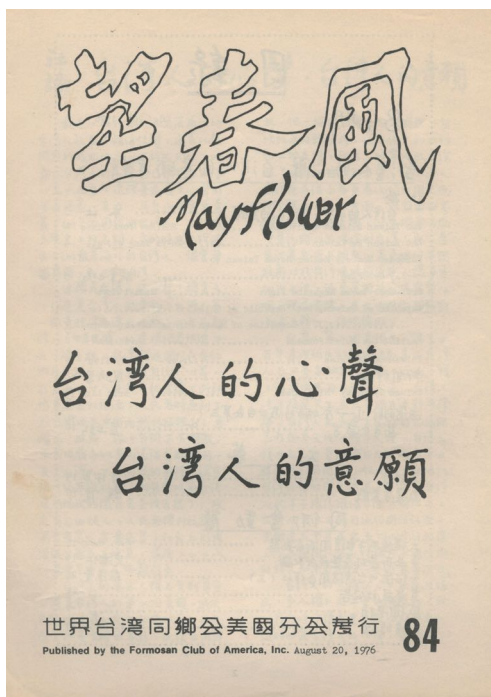 望春風
Mayflower
台湾人的心聲
台湾人的意願
世界台湾同鄉会美國分会發行
Published by the Formosan Club of America, Inc. August 20, 1976
84